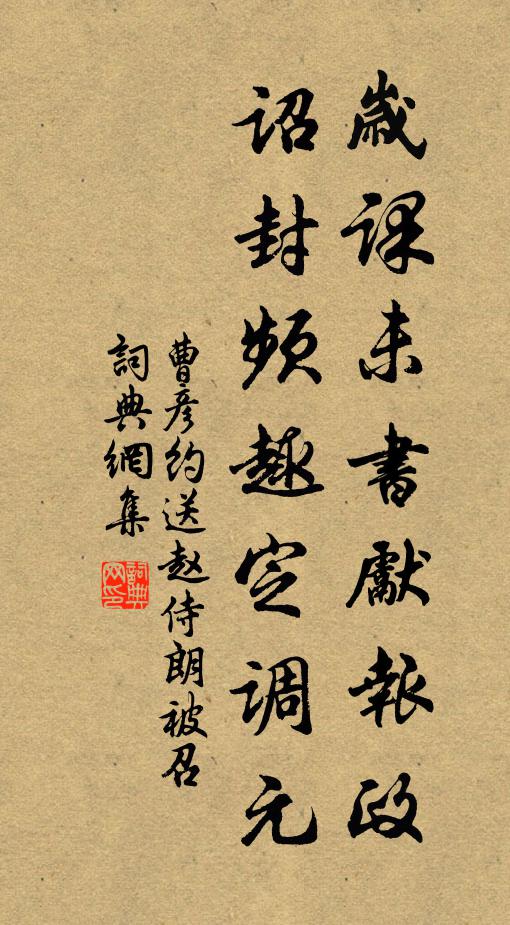 歲課未書獻報政
诏封頻趣定调元
曹彦约送赵侍朗被召
詞典網集
詞典网印